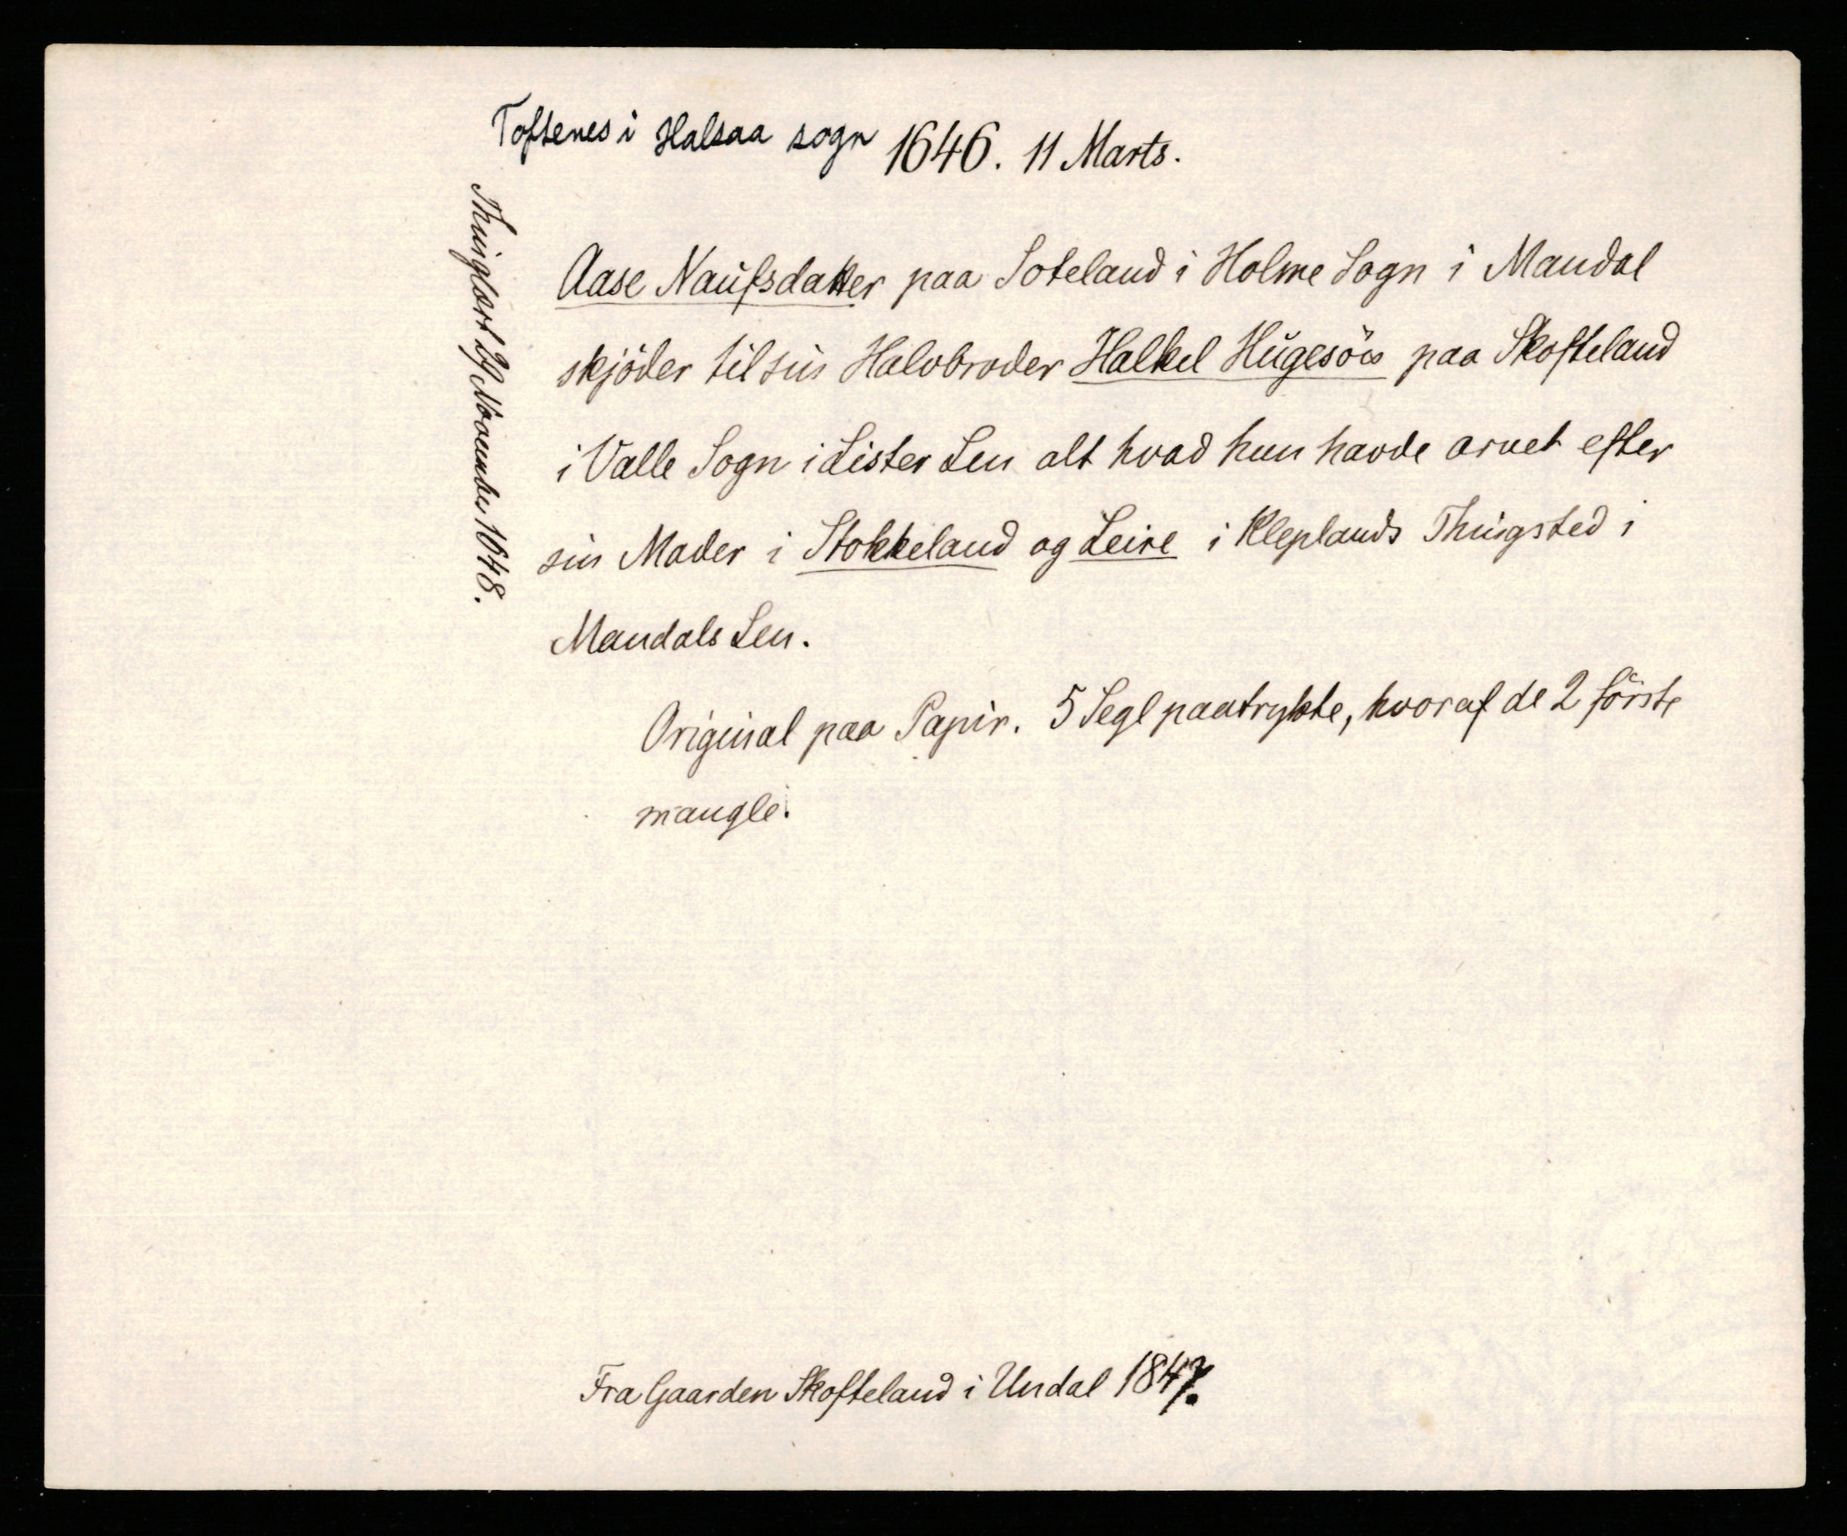 Toftenes i Halsaa sogn 1646. 11 Marts.
Thinglæst 29 November 1648.
Aase Naufsdatter paa Soteland i Holme Sogn i Mandal
skjöder til sin Halvbroder Halkel Hugesön paa Skofteland
i Valle Sogn i Lister Len alt hvad hun havde arvet efter
sin Moder i Stokkeland og Leire i Kleplands Thingsted i
Mandals Len.
Original paa Papir. 5 Segl paatrykte, hvoraf de 2 förste
mangle.
Fra Gaarden Skofteland i Undal 1847.